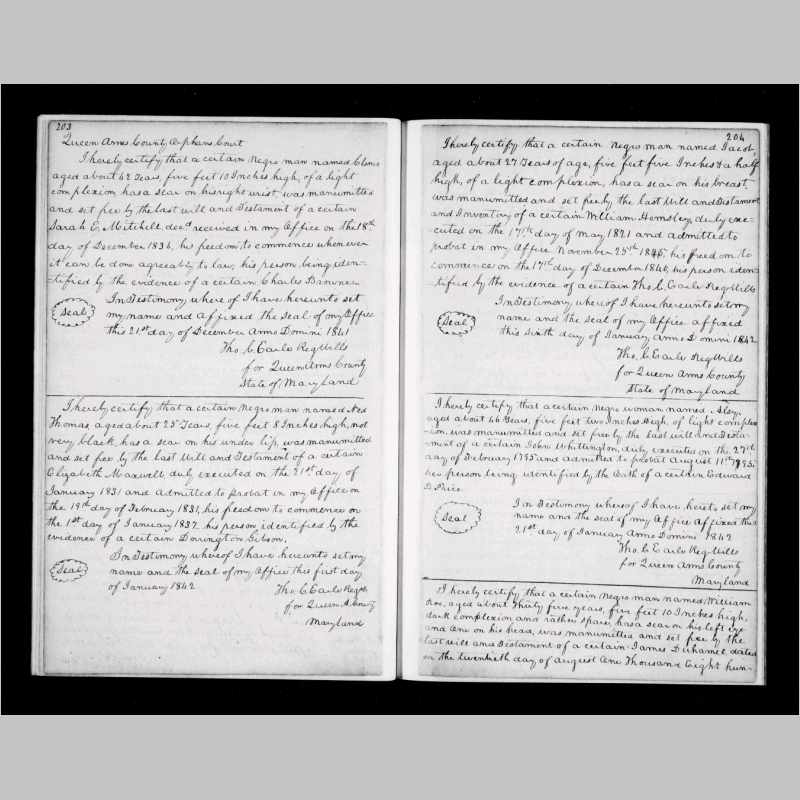 203
Queen Anns County Orphans Court
I hereby certify that a certain Negro man named
aged about 42 Years, five feet 10 Inches high, of a light
complexion, has a scar on his right wrist, was manumitted
and set free by the last will and Testament of a certain
Sarah E. Mitchell decd received in my Office on the 18th
day of December 1836, his freedom to commence whenever
it can be done agreeably to law, his person being iden-
-tified by the evidence of a certain Charles
Seal
In Testimony where of I have hereunto set
my name and affixed the seal of my Office
this 21st day of December Anno Domini 1841
Tho. C Earle Reg Wills
for Queen Anns County
State of Maryland
I hereby certify that a certain Negro man named Ned
Thomas aged about 25 Years, five feet 8 Inches high, not
very black, has a scar on his under lip, was manumitted
and set free by the last Will and Testament of a certain
Elizabeth Maxwell duly executed on the 21st day of
January 1831 and admitted to probat in my Office on
the 19th day of February 1831, his freedom to commence on
the 1st day of January 1832, his person identified by the
evidence of a certain Dorington Gibson.
Seal
In Testimony whereof I have hereunto set my
name and the seal of my Office this first day
of January 1842
Tho. C Earle Reg
for Queen A. County
Maryland
204
I hereby certify that a certain Negro man named Jacob,
aged about 27 Years of age, five feet five Inches & a half
high, of a light complexion, has a scar on his breast,
was manumitted and set free by the last Will and Testament
and Inventory of a certain William Hemsley, duly exe-
cuted on the 17th day of May 1821 and admitted to
probat in my Office November 25th his freedom to
commence on the 17th day of December 1840, his person iden-
tified by the evidence of a certain Tho. C. Earle Reg Wills
Seal
In Testimony, whereof I have hereunto set my
name and the seal of my Office affixed
this sixth day of January Anno Domini 1842
Tho. C. Earle Reg Wills
for Queen Anns County
State of Maryland
I hereby certify that a certain negro woman named
aged about 66 Years, five feet two Inches high, of light complex
ion, was manumitted and set free by the last will and Testa-
ment of a certain John Whittington, duly executed on the 27th
day of February 1785 and admitted to probat August 11th 1785,
her person being identified by the Oath of a certain Edward
D. Price.
Seal
In Testimony whereof I have hereto set my
name and the seal of my Office Affixed this
21st day of January Anno Domini 1842
Tho. C Earle Reg Wills
for Queen Anns County
Maryland
I hereby certify that a certain Negro man named William
Roe, aged about Thirty five years, five feet 10 Inches high,
dark complexion and rather spare, has a scar on his left eye
and one on his head, was manumitted and set free by the
last will and Testament of a certain James Duhamel, dated
on the twentieth day of august One Thousand Eight hun-